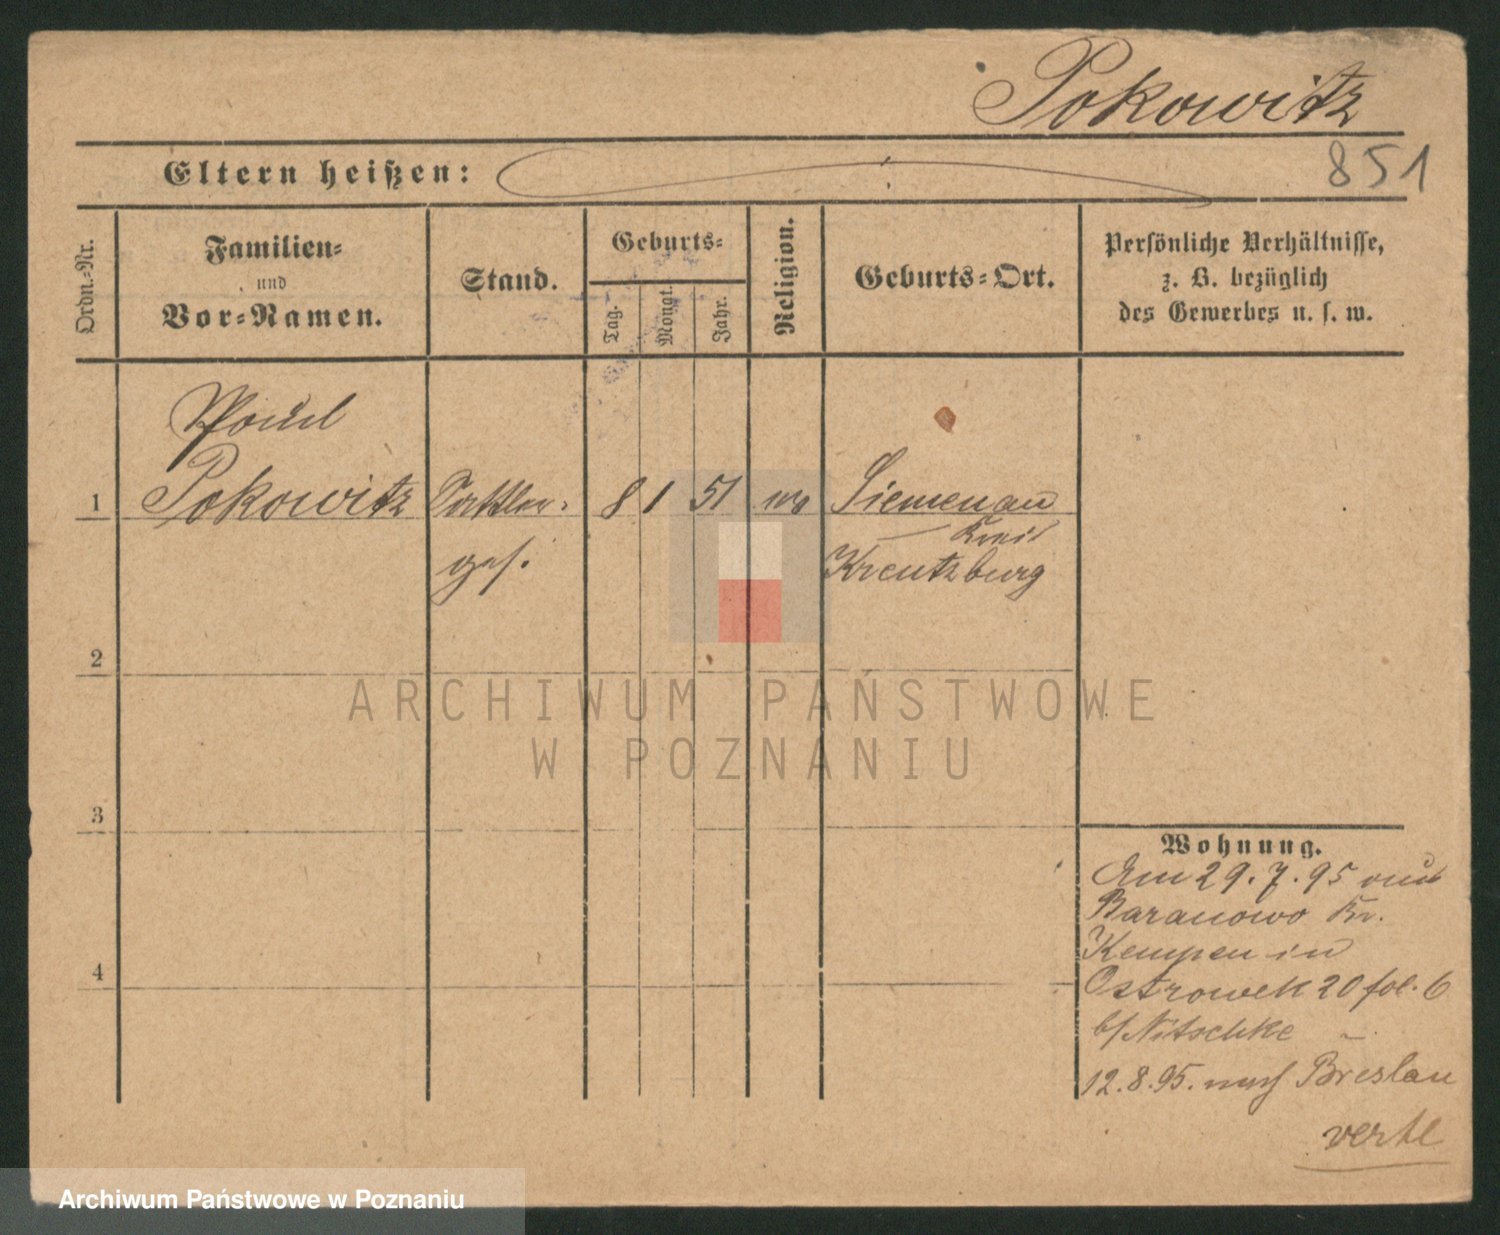 Pokowitz
851
Eltern heißen:
Ordn.-Nr.
Familien-
und
Vor-Namen.
Stand.
Geburts-
Tag.
Monat.
Jahr.
Religion.
Geburts-Ort.
Persönliche Verhältnisse,
z. B. bezüglich
des Gewerbes u. s. w.
Paul
1 Pokowitz Sattler- 8 1 51 Siemenau
Kreis
ges. Kreutzburg
2
3
4
Wohnung.
Am 29.7.95 aus
Baranowo Kr.
Kempen in
Ostrowek 20 fol. 6
b/ Nitschke
12.8.95. nach Breslau
ARCHIWUM PAŃSTWOWE
W POZNANIU
Archiwum Państwowe w Poznaniu